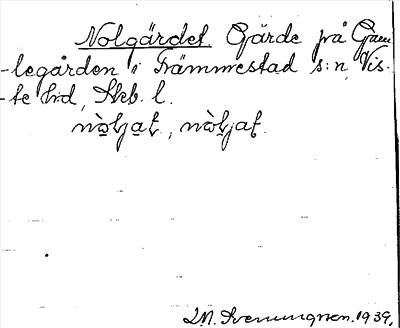 Nolgärdet. Gärde på Gam-
-legården i Främmestad s:n, Vis-
-te hd, Skb. l.
nòljat, nòljat.
Sveningsson. 1939.